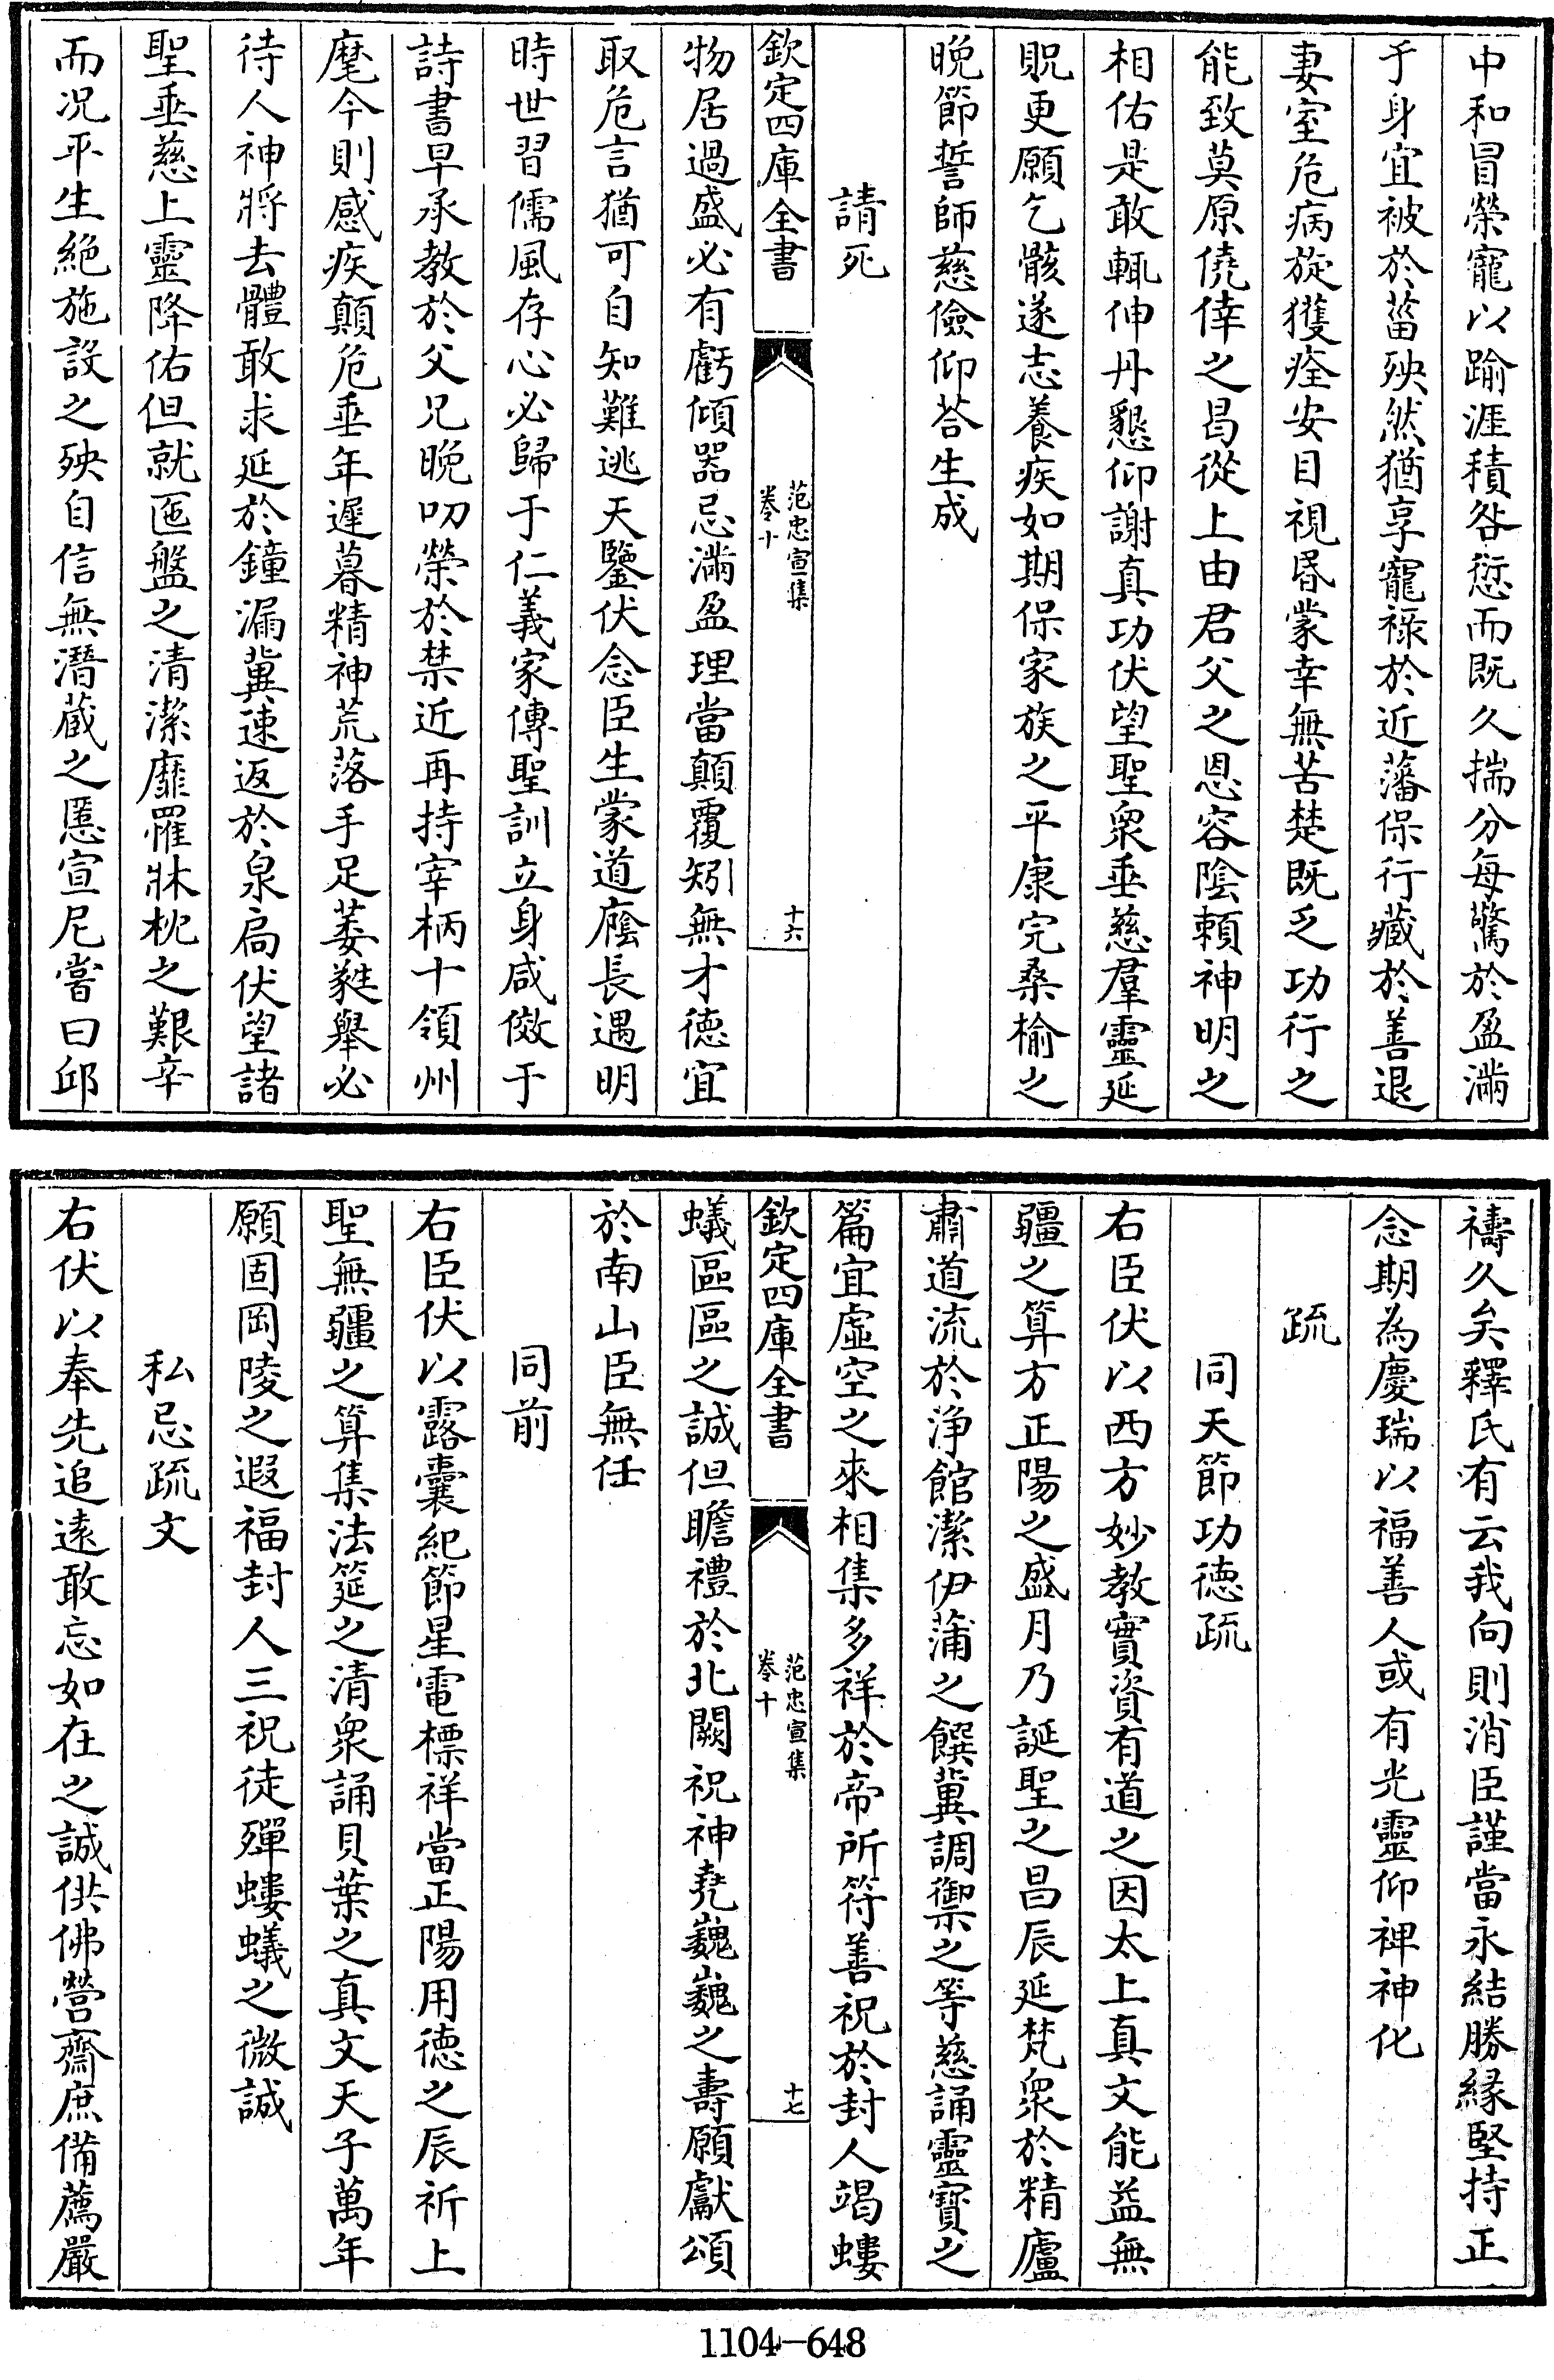 中和冒榮寵以踰涯積咎愆而既久揣分每驚於盈滿
于身宜被於菑殃然猶享寵祿於近藩保行藏於善退
妻室危病旋獲痊安目視昬蒙幸無苦楚既乏功行之
能致莫原僥倖之曷從上由君父之恩容陰頼神明之
相佑是敢輙伸丹懇仰謝真功伏望聖衆垂慈羣靈延
貺更願乞骸遂志養疾如期保家族之平康完桑榆之
晚節誓師慈儉仰荅生成
請死
欽定四庫全書
范忠宣集
卷十
十六
物居過盛必有虧傾器忌滿盈理當顛覆矧無才徳宜
取危言猶可自知難逃天鑒伏念臣生蒙道廕長遇明
時世習儒風存心必歸于仁義家傳聖訓立身咸倣于
詩書早承教於父兄晚叨榮於禁近再持宰柄十領州
麾今則感疾顛危垂年遲暮精神荒落手足萎蕤舉必
待人神將去體敢求延於鐘漏冀速返於泉扃伏望諸
聖垂慈上靈降佑但就匜盤之清潔靡罹牀枕之艱辛
而况平生絶施設之殃自信無潛藏之慝宣尼嘗曰邱
禱久矣釋氏有云我向則消臣謹當永結勝縁堅持正
念期為慶瑞以福善人或有光靈仰裨神化
疏
同天節功徳疏
右臣伏以西方妙教實資有道之因太上真文能益無
疆之算方正陽之盛月乃誕聖之昌辰延梵衆於精廬
肅道流於浄館潔伊蒲之饌冀調御之等慈誦靈寳之
篇宜虛空之來相集多祥於帝所符善祝於封人竭螻
欽定四庫全書
范忠宣集
卷十
十七
蟻區區之誠但瞻禮於北闕祝神堯巍巍之壽願獻頌
於南山臣無任
同前
右臣伏以露囊紀節星電標祥當正陽用徳之辰祈上
聖無疆之算集法筵之清衆誦貝葉之真文天子萬年
願固岡陵之遐福封人三祝徒殫螻蟻之微誠
私忌疏文
右伏以奉先追逺敢忘如在之誠供佛營齋庶備薦嚴
1104-648